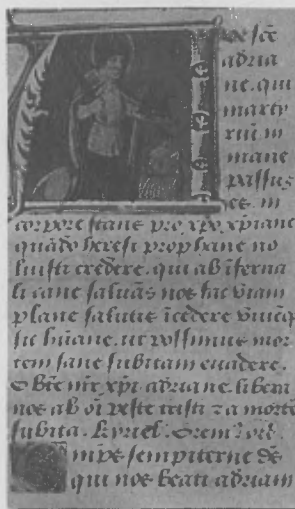 ve scē
adria
ne. qui
marty
riū in
mane
passus
es. in
corpore stans pro xp̄o xp̄iane
quādo heresi prophane no
luisti credere. qui ab īferna
li cane saluās nos fac viam
plane salutis īcedere
sic hūane. ut possimus mor
tem sane subitam euadere.
O btē mr̄ xp̄i adriane. libera
nos ab oī peste tristi ⁊ a morte
subita. kyriel. Orem
mp̄s sempiterne dē
qui nos beati adriani